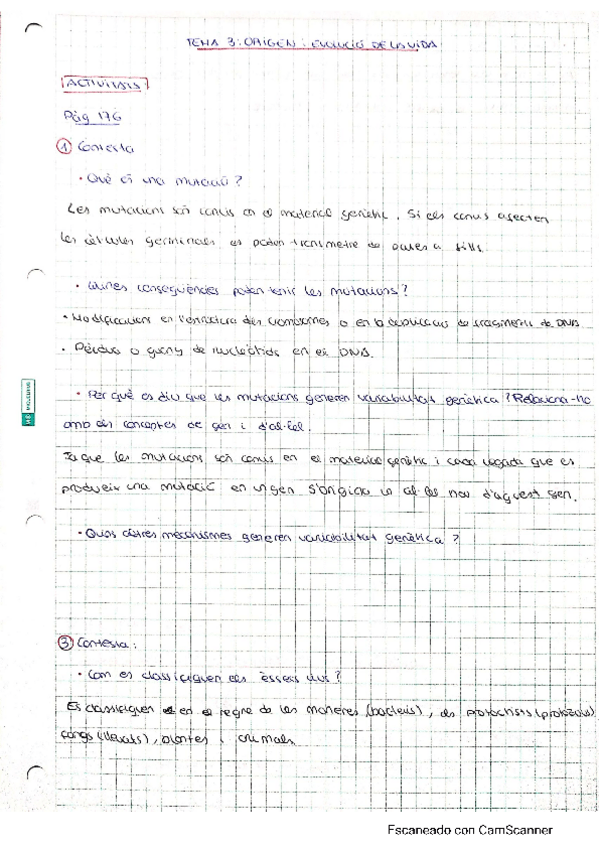 TEMA 3: ORIGEN I EVOLUCIÓ DE LA VIDA
ACTIVITATS
Pàg 176
① Contesta
• Què és una mutació?
Les mutacions són canvis en el material genètic. Si els canvis afecten
les cèl·lules germinals es poden transmetre de pares a fills.
• Quines conseqüències poden tenir les mutacions?
• Modificacions en l'estructura dels cromosomes o en la duplicació de fragments de DNA
• Pèrdua o guany de nucleòtids en el DNA.
• Per què es diu que les mutacions generen variabilitat genètica? Relaciona-ho
amb els conceptes de gen i d'al·lel.
Ja que les mutacions són canvis en el material genètic i cada vegada que es
produeix una mutació en un gen s'origina un al·lel nou d'aquest gen.
• Quins altres mecanismes generen variabilitat genètica?
③ Contesta:
• Com es classifiquen els éssers vius?
Es classifiquen en el regne de les moneres (bacteris), els protoctists (protozous)
fongs (llevats), plantes i animals.
Escaneado con CamScanner